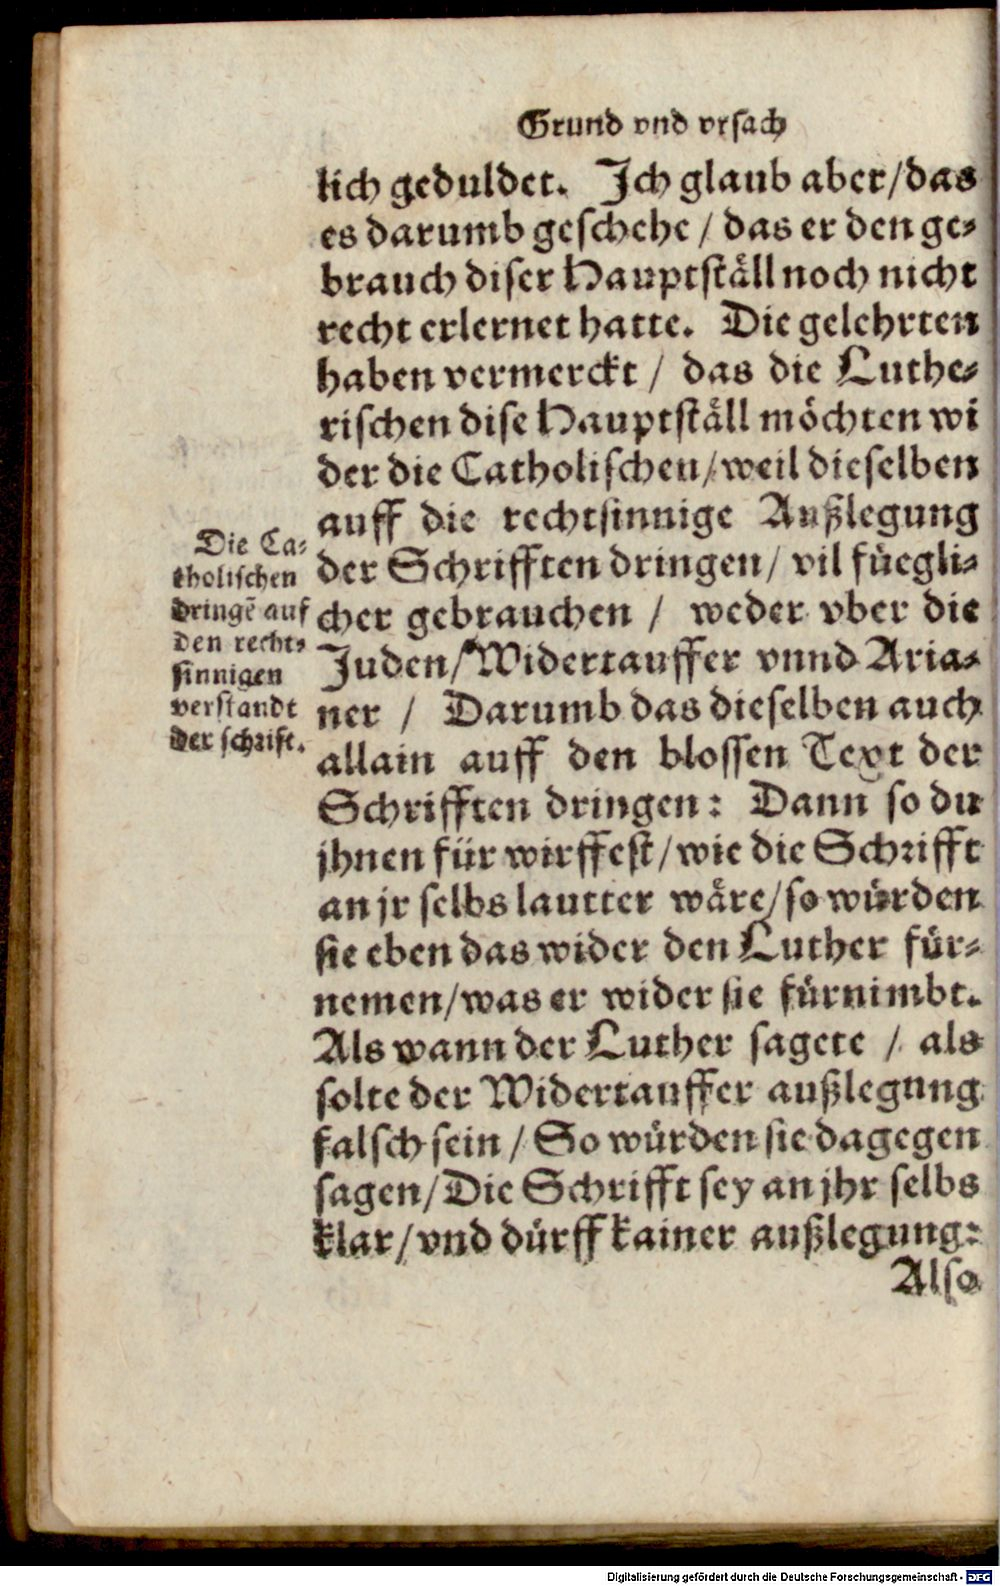 Grund vnd vrsach
lich geduldet. Ich glaub aber/das
es darumb geschehe / das er den ge-
brauch diser Hauptställ noch nicht
recht erlernet hatte. Die gelehrten
haben vermerckt / das die Luthe-
rischen dise Hauptställ möchten wi
der die Catholischen/weil dieselben
auff die rechtsinnige Außlegung
der Schrifften dringen/ vil füegli-
cher gebrauchen / weder vber die
Juden/Widertauffer vnnd Aria-
ner / Darumb das dieselben auch
allain auff den blossen Text der
Schrifften dringen: Dann so du
jhnen für wirffest/wie die Schrifft
an jr selbs lautter wäre/so würden
sie eben das wider den Luther für-
nemen/was er wider sie fürnimbt.
Als wann der Luther sagete / als
solte der Widertauffer außlegung
falsch sein / So würden sie dagegen
sagen/Die Schrifft sey an jhr selbs
klar/vnd dürff kainer außlegung:
Also
Die Ca-
tholischen
dringē auf
den recht-
sinnigen
verstandt
der schrift.
Digitalisierung gefördert durch die Deutsche Forschungsgemeinschaft - DFG